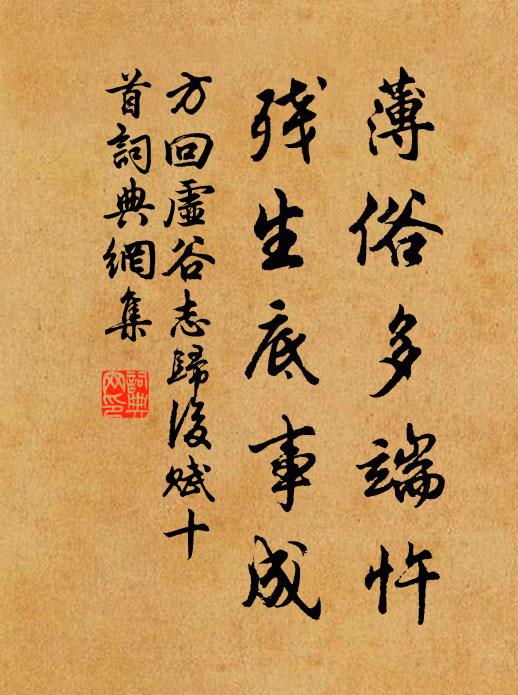 薄俗多端忤
残生底事成
方回虛谷志歸後賦十
首詞典網集
詞典網印